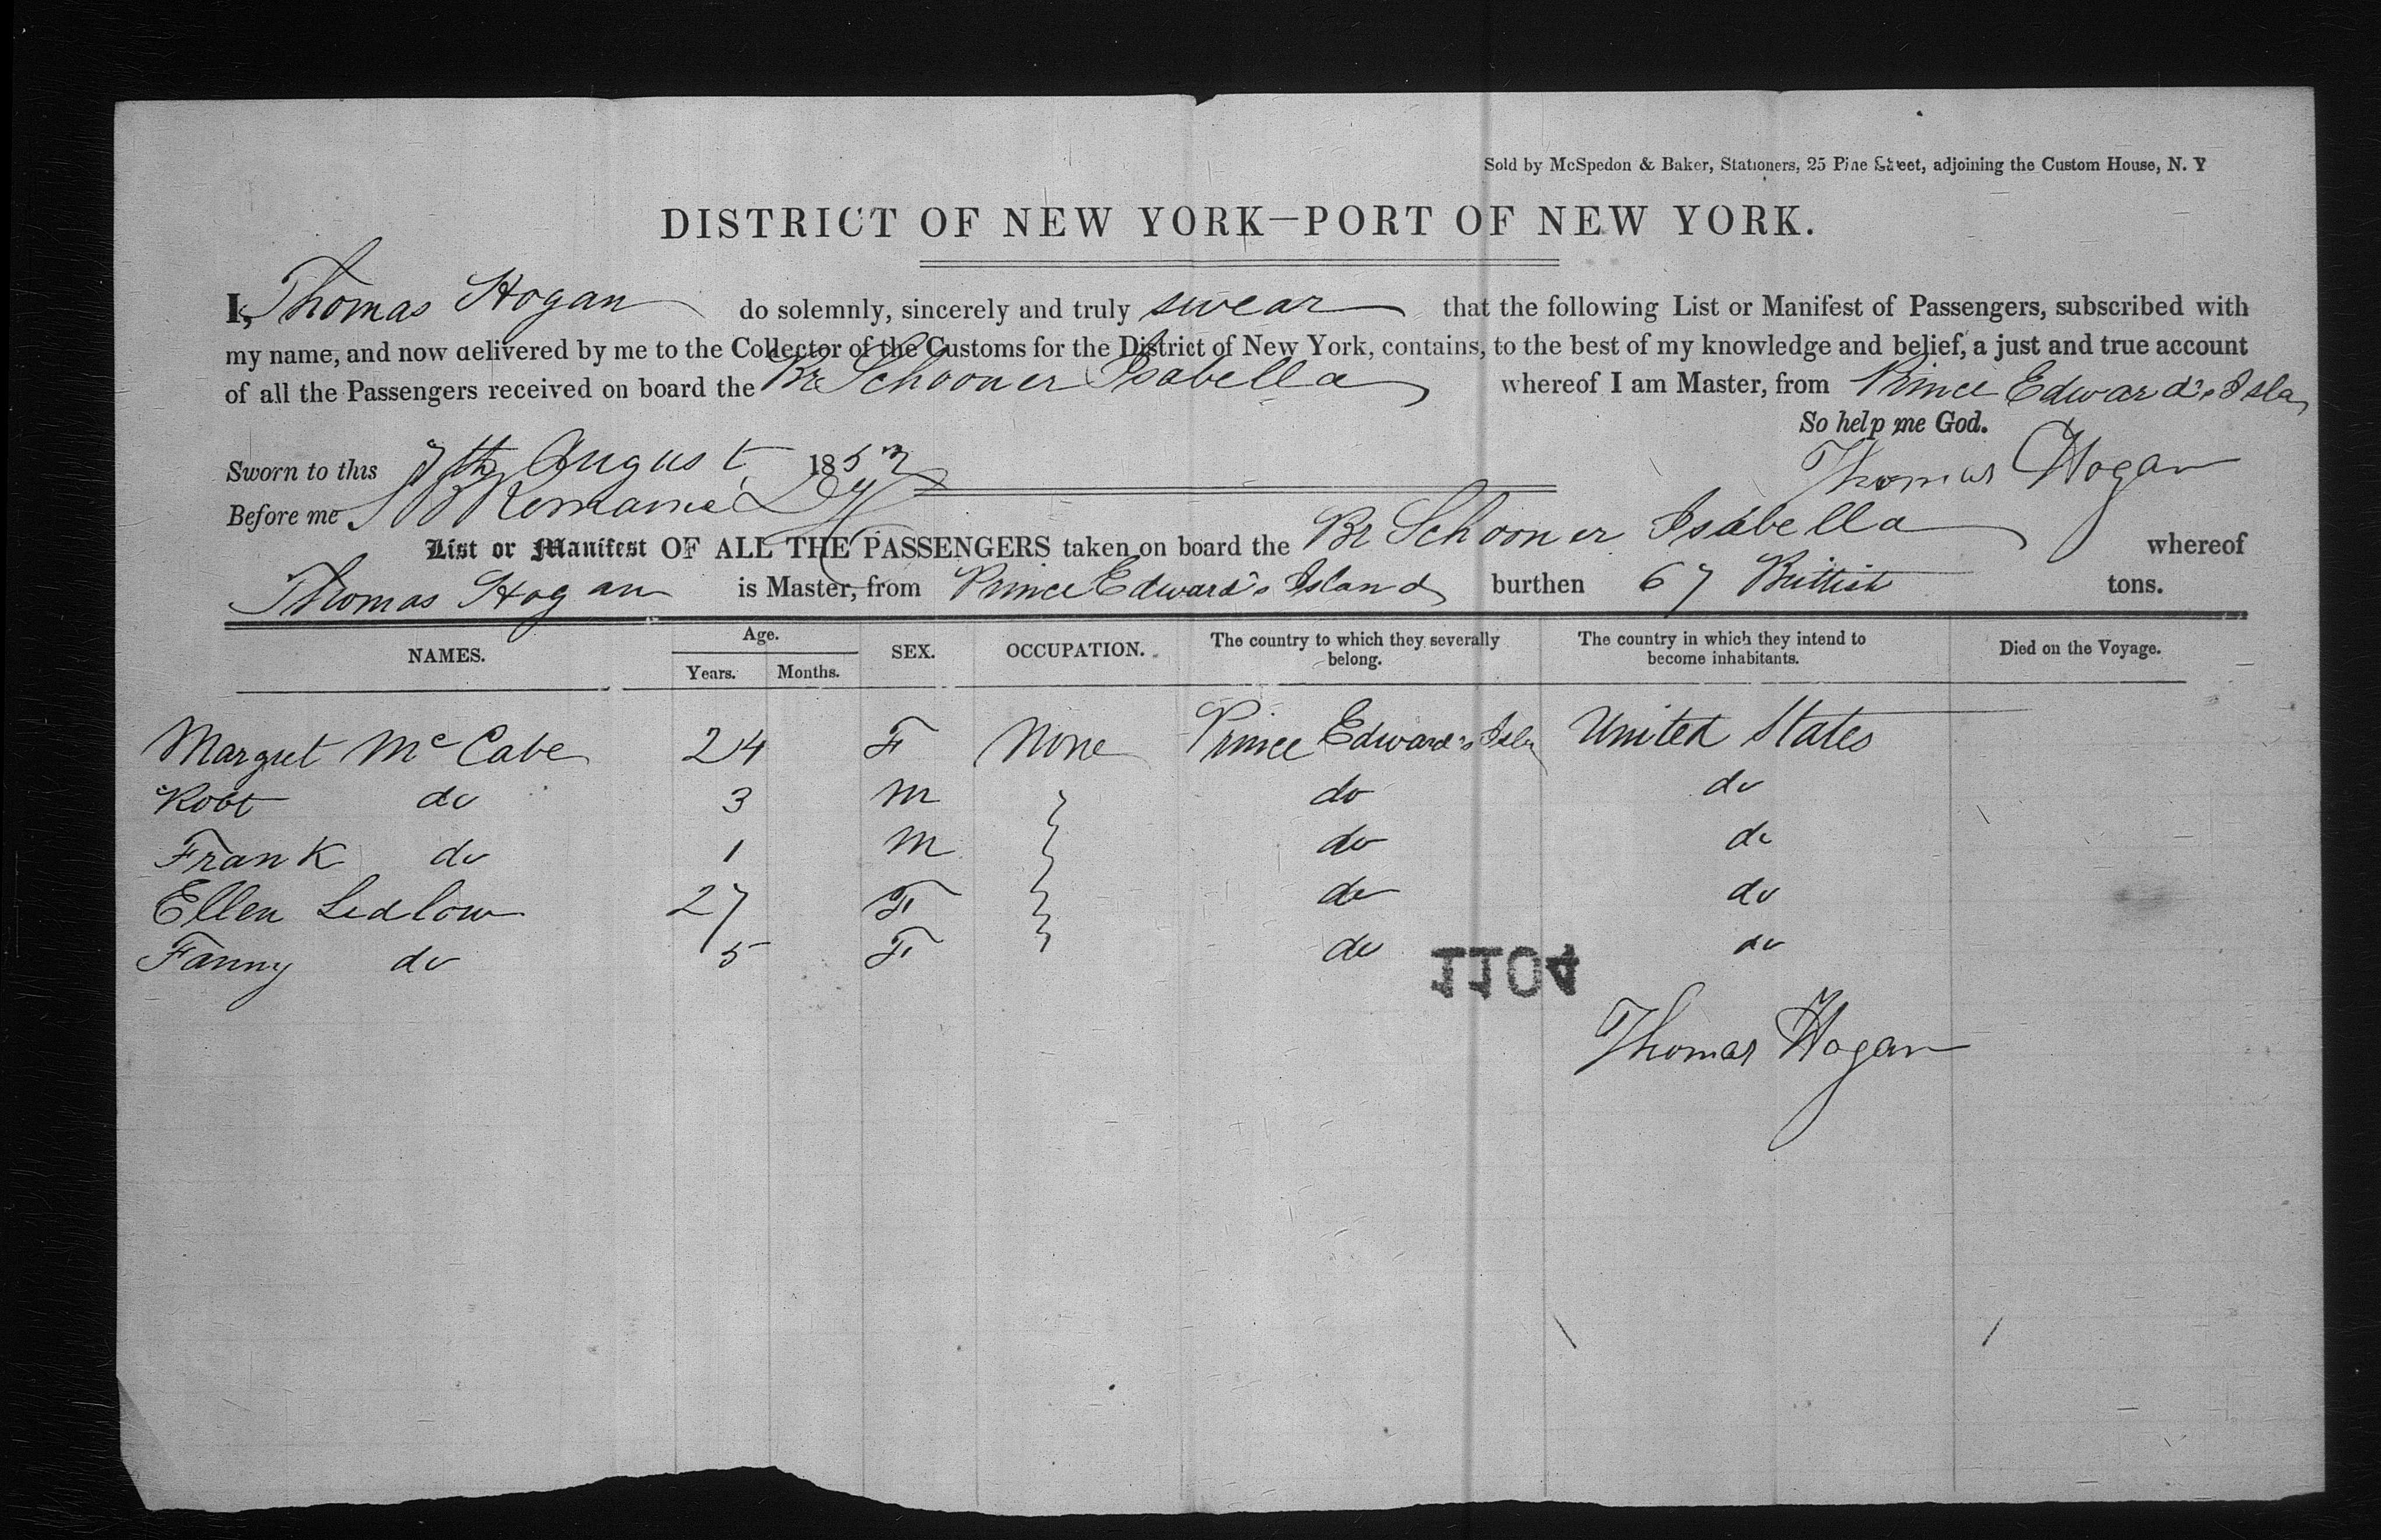 Sold by McSpedon & Baker, Stationers, 25 Pine Street, adjoining the Custom House, N. Y
DISTRICT OF NEW YORK—PORT OF NEW YORK.
I, Thomas Hogan do solemnly, sincerely and truly swear that the following List or Manifest of Passengers, subscribed with
my name, and now delivered by me to the Collector of the Customs for the District of New York, contains, to the best of my knowledge and belief, a just and true account
of all the Passengers received on board the Br Schooner Isabella whereof I am Master, from Prince Edward's Isla
So help me God.
Sworn to this 7th August 1853 Thomas Hogan
Before me
List or Manifest OF ALL THE PASSENGERS taken on board the Br Schooner Isabella whereof
Thomas Hogan is Master, from Prince Edward's Island burthen 67 Brittish tons.
NAMES. Age. Years. Months. SEX. OCCUPATION. The country to which they severally belong. The country in which they intend to become inhabitants. Died on the Voyage.
Margret McCabe 24 F None Prince Edward's Isla United States
Robt do 3 M do do
Frank do 1 M do do
Ellen Ledlow 27 F do do
Fanny do 5 F do do
1104
Thomas Hogan